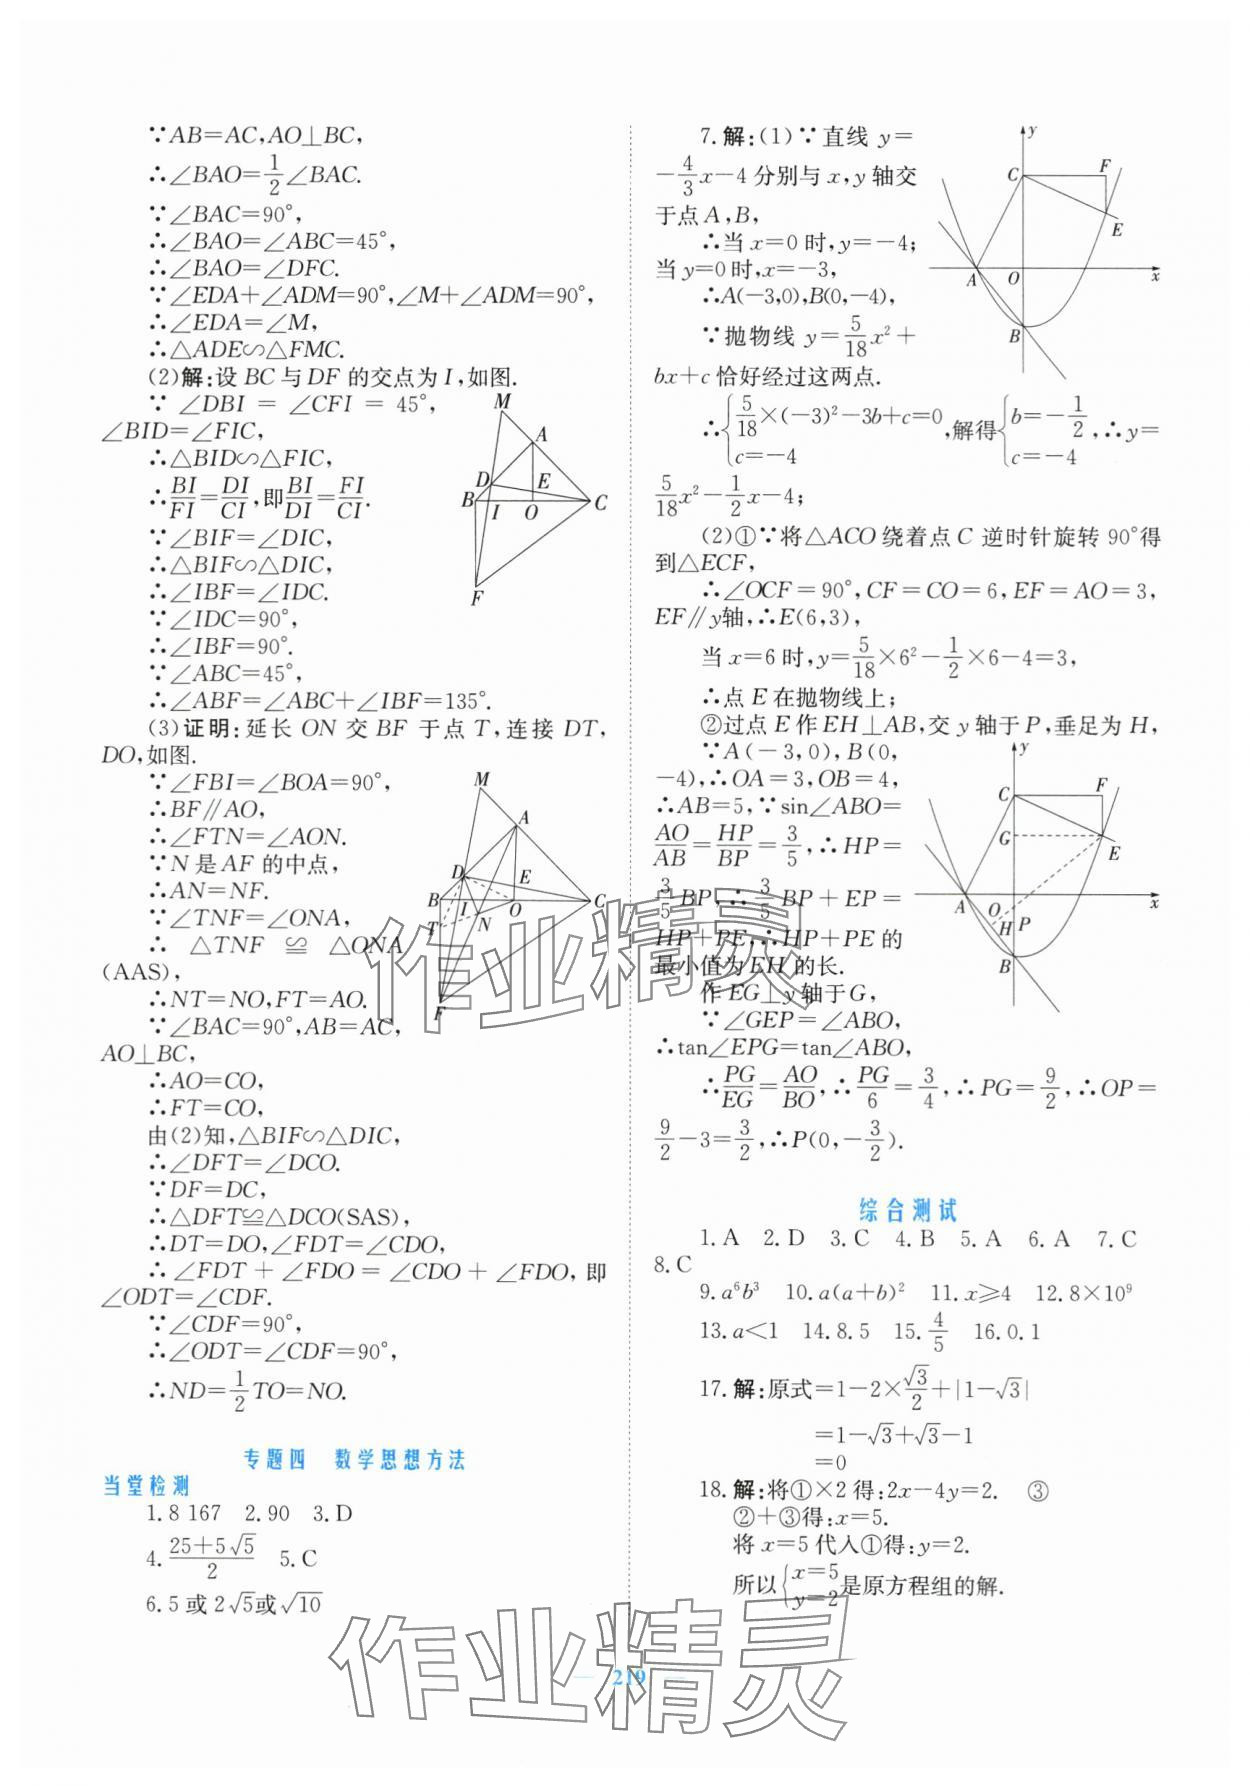 ∵AB=AC,AO⊥BC,
∴∠BAO=1/2∠BAC.
∵∠BAC=90°,
∴∠BAO=∠ABC=45°,
∴∠BAO=∠DFC.
∵∠EDA+∠ADM=90°,∠M+∠ADM=90°,
∴∠EDA=∠M,
∴△ADE∽△FMC.
(2)解:设 BC 与 DF 的交点为 I,如图.
∵ ∠DBI = ∠CFI = 45°,
∠BID=∠FIC,
∴△BID∽△FIC,
∴BI/FI=DI/CI,即BI/DI=FI/CI.
∵∠BIF=∠DIC,
∴△BIF∽△DIC,
∴∠IBF=∠IDC.
∵∠IDC=90°,
∴∠IBF=90°.
∵∠ABC=45°,
∴∠ABF=∠ABC+∠IBF=135°.
M
A
D
E
B
I
O
C
F
(3)证明:延长 ON 交 BF 于点 T,连接 DT,
DO,如图.
∵∠FBI=∠BOA=90°,
∴BF∥AO,
∴∠FTN=∠AON.
∵N 是 AF 的中点,
∴AN=NF.
∵∠TNF=∠ONA,
∴ △TNF ≌ △ONA
(AAS),
∴NT=NO,FT=AO.
∵∠BAC=90°,AB=AC,
AO⊥BC,
∴AO=CO,
∴FT=CO,
由(2)知,△BIF∽△DIC,
∴∠DFT=∠DCO.
∵DF=DC,
∴△DFT≌△DCO(SAS),
∴DT=DO,∠FDT=∠CDO,
∴∠FDT+∠FDO=∠CDO+∠FDO,即
∠ODT=∠CDF.
∵∠CDF=90°,
∴∠ODT=∠CDF=90°,
∴ND=1/2TO=NO.
M
A
D
E
B
I
O
C
T
N
F
专题四 数学思想方法
当堂检测
1.8 167 2.90 3.D
4.(25+5√5)/2 5.C
6.5 或 2√5或√10
7.解:(1)∵直线 y=
-4/3x-4 分别与 x,y 轴交
于点 A,B,
∴当 x=0 时,y=-4;
当 y=0 时,x=-3,
∴A(-3,0),B(0,-4),
∵抛物线 y=5/18x²+
bx+c 恰好经过这两点.
∴{5/18×(-3)²-3b+c=0 c=-4,解得{b=-1/2 c=-4,∴y=
5/18x²-1/2x-4;
y
C
F
E
A
O
x
B
(2)①∵将△ACO 绕着点 C 逆时针旋转 90°得
到△ECF,
∴∠OCF=90°,CF=CO=6,EF=AO=3,
EF∥y轴,∴E(6,3),
当 x=6 时,y=5/18×6²-1/2×6-4=3,
∴点 E 在抛物线上;
②过点 E 作 EH⊥AB,交 y 轴于 P,垂足为 H,
∵A(-3,0),B(0,
-4),∴OA=3,OB=4,
∴AB=5,∵sin∠ABO=
AO/AB=HP/BP=3/5,∴HP=
3/5BP,∴3/5BP+EP=
HP+PE,∴HP+PE 的
最小值为 EH 的长.
作 EG⊥y 轴于 G,
∵∠GEP=∠ABO,
∴tan∠EPG=tan∠ABO,
∴PG/EG=AO/BO,∴PG/6=3/4,∴PG=9/2,∴OP=
9/2-3=3/2,∴P(0,-3/2).
y
C
F
G
E
A
O
H
P
x
B
综合测试
1.A 2.D 3.C 4.B 5.A 6.A 7.C
8.C
9.a⁶b³ 10.a(a+b)² 11.x≥4 12.8×10⁹
13.a<1 14.8.5 15.4/5 16.0.1
17.解:原式=1-2×√3/2+|1-√3|
=1-√3+√3-1
=0
18.解:将①×2 得:2x-4y=2. ③
②+③得:x=5.
将 x=5 代入①得:y=2.
所以{x=5 y=2是原方程组的解.
作业精灵
作业精灵
219